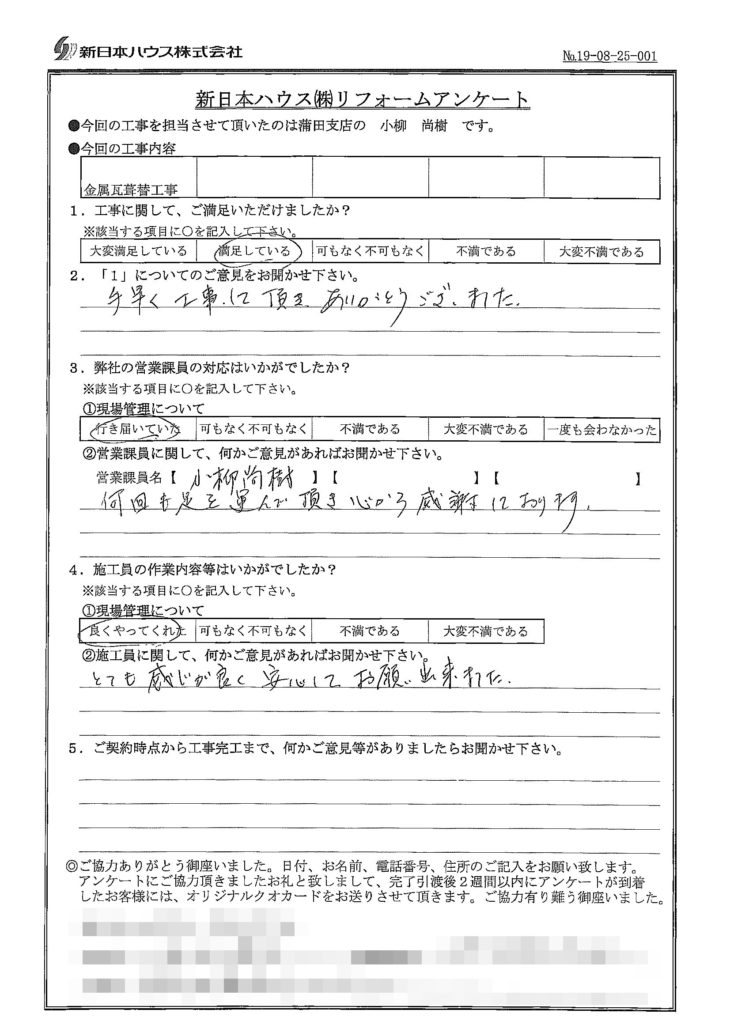 新日本ハウス株式会社
№19-08-25-001
新日本ハウス㈱リフォームアンケート
●今回の工事を担当させて頂いたのは蒲田支店の 小柳 尚樹 です。
●今回の工事内容
金属瓦葺替工事
1．工事に関して、ご満足いただけましたか？
※該当する項目に○を記入して下さい。
大変満足している 満足している 可もなく不可もなく 不満である 大変不満である
2．「1」についてのご意見をお聞かせ下さい。
手早く工事して頂きありがとうございました.
3．弊社の営業課員の対応はいかがでしたか？
※該当する項目に○を記入して下さい。
①現場管理について
行き届いていた 可もなく不可もなく 不満である 大変不満である 一度も会わなかった
②営業課員に関して、何かご意見があればお聞かせ下さい。
営業課員名【 小柳尚樹 】【 】【 】
何回も足を運んで頂き心から感謝しております.
4．施工員の作業内容等はいかがでしたか？
※該当する項目に○を記入して下さい。
①現場管理について
良くやってくれた 可もなく不可もなく 不満である 大変不満である
②施工員に関して、何かご意見があればお聞かせ下さい。
とても感じが良く安心してお願い出来ました.
5．ご契約時点から工事完工まで、何かご意見等がありましたらお聞かせ下さい。
◎ご協力ありがとう御座いました。日付、お名前、電話番号、住所のご記入をお願い致します。
アンケートにご協力頂きましたお礼と致しまして、完了引渡後２週間以内にアンケートが到着
したお客様には、オリジナルクオカードをお送りさせて頂きます。ご協力有り難う御座いました。